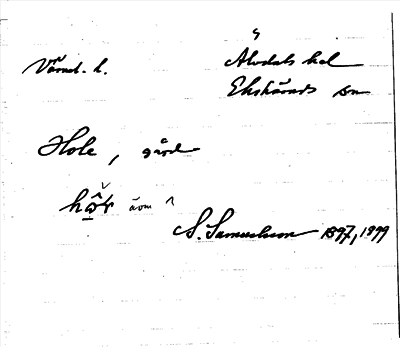 Värml. l. Älvdals hd
Ekshärads sn
Hole, gård
äom ^
S. Samuelsson 1897, 1899